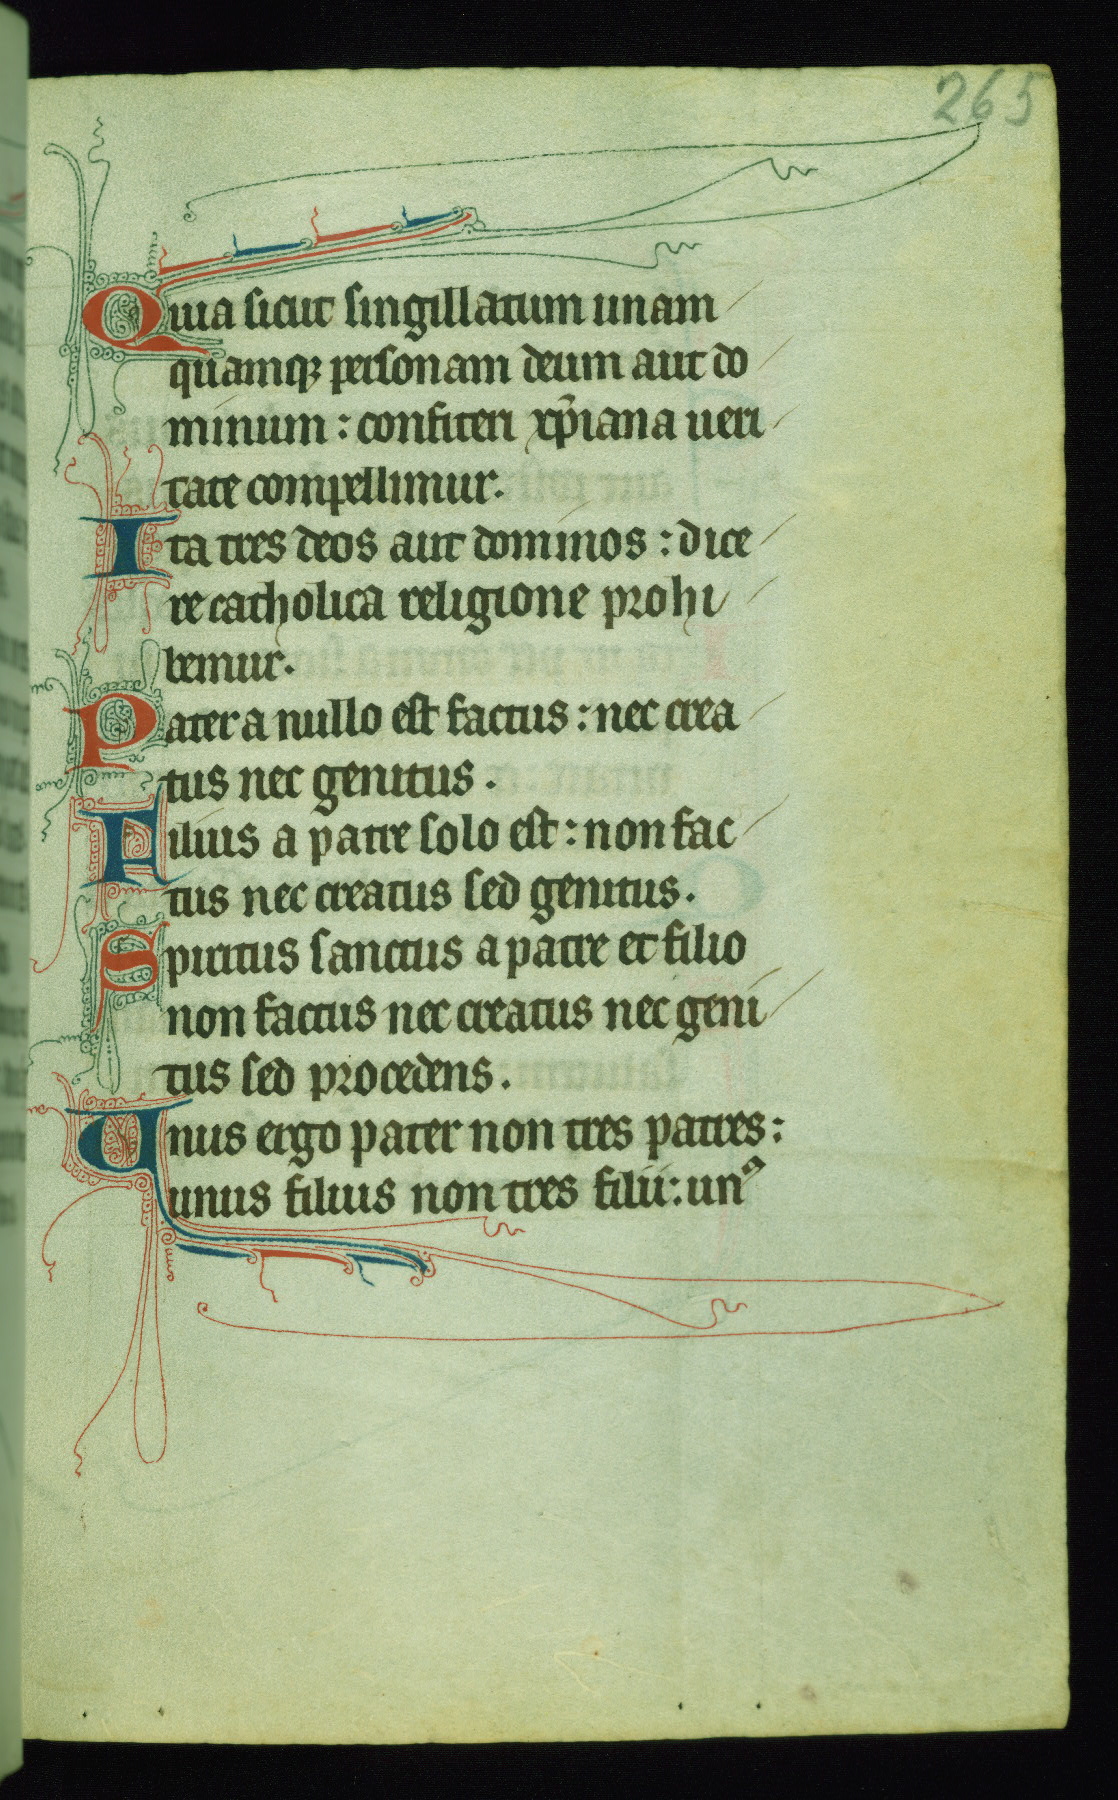 265
Quia sicut singillatum unam
quamq; personam deum aut do
minum : confiteri xp̄iana ueri
tate compellimur.
Ita tres deos aut dominos : dice
re catholica religione prohi
bemur.
Pater a nullo est factus : nec crea
tus nec genitus .
Filius a patre solo est : non fac
tus nec creatus sed genitus .
Spiritus sanctus a patre et filio
non factus nec creatus nec geni
tus sed procedens .
Unus ergo pater non tres patres :
unus filius non tres filii : unꝰ